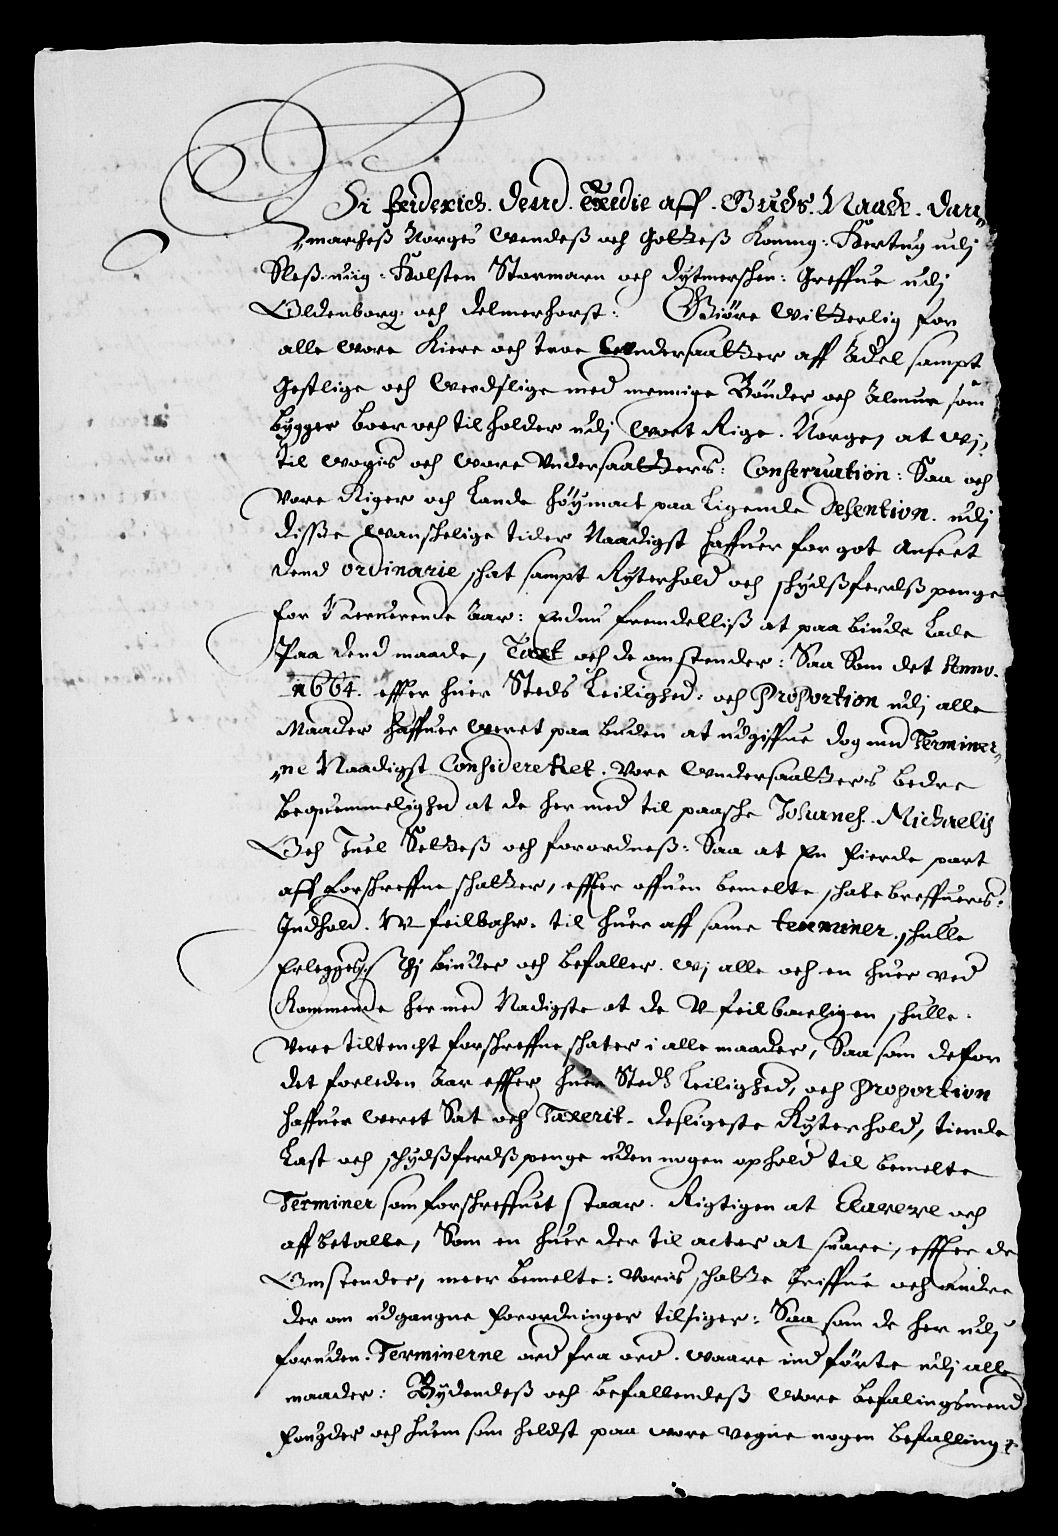 Wi friderich. dend. Tredie aff. Guds. Naade. Dan„
„marcheß Norges Wendeß och Gotteß Koning: Hertug udj
Sleßuiig: Holsten Stormarn och dytmerschen: Greffue udj
Oldenborg: och Delmerhorst: Giöre Witterlig for
alle Wore Kiere och troe Undersaatter aff Adel sampt
Gestlige och Werdslige med mennige Bönder och Almue som
bygger boer och tilholder udj Wort Rige. Norge, at Wj,
til Woris och Wore Undersaatters: Conseruation: Saa och
Vore Riger och Lande höymact paa Ligende Defention. udj
disse Wanschelige tider Naadigst haffuer for got Anseet
dend Ordinarie schat sampt Ryterhold och schydsferdß penge
for Neruerende Aar: Endnu fremdelliß at paa biude Lade
Paa dend maade, Taxt och de omstender: Saa Som det Anno.
1664. effter huer Steds Leilighed: och Proportion udj alle
Maader haffuer Weret paa buden at udgiffue dog med Terminer„
„ne Naadigst Considereret. Vore Undersaatters bedre
bequemmelighed at de her med til paasche Johannes. Michaelis
Och Juel Setteß och forordneß: Saa at En fierde part
aff forschreffne schatter, effter offuen bemelte schatebreffuers
Indhold. U-feilbahr. til huer aff same terminer. schulle
Erlegges: Thj biuder och befaller. Wj alle och en huer ved
Kommende her med Nadigste at de U-feilbarligen schulle.
Vere tiltencht forschreffne schater i alle maader, Saa som de for
det forleden Aar effter huer Steds Leilighed, och Proportion
haffuer Weret Sat och Taxerit. desligeste Ryterhold, tiende
Last och schydßferdßpenge uden nogen ophold til bemelte
Terminer som forschreffuet staar. Rigtigen at Clarere och
aff betalle, Som en huer der til acter at suare, effter de
Omstender, meer bemelte: Voris schatte breffue och andre
der om udgangne forordninger tilsiger: Saa som de her udj
foruden. Terminerne ord fra ord. Waare indförte udj alle
maader: Bydendeß och befallendeß Wore befalingsmend
fougder och huem som heldst paa Wore Vegne nogen befalling